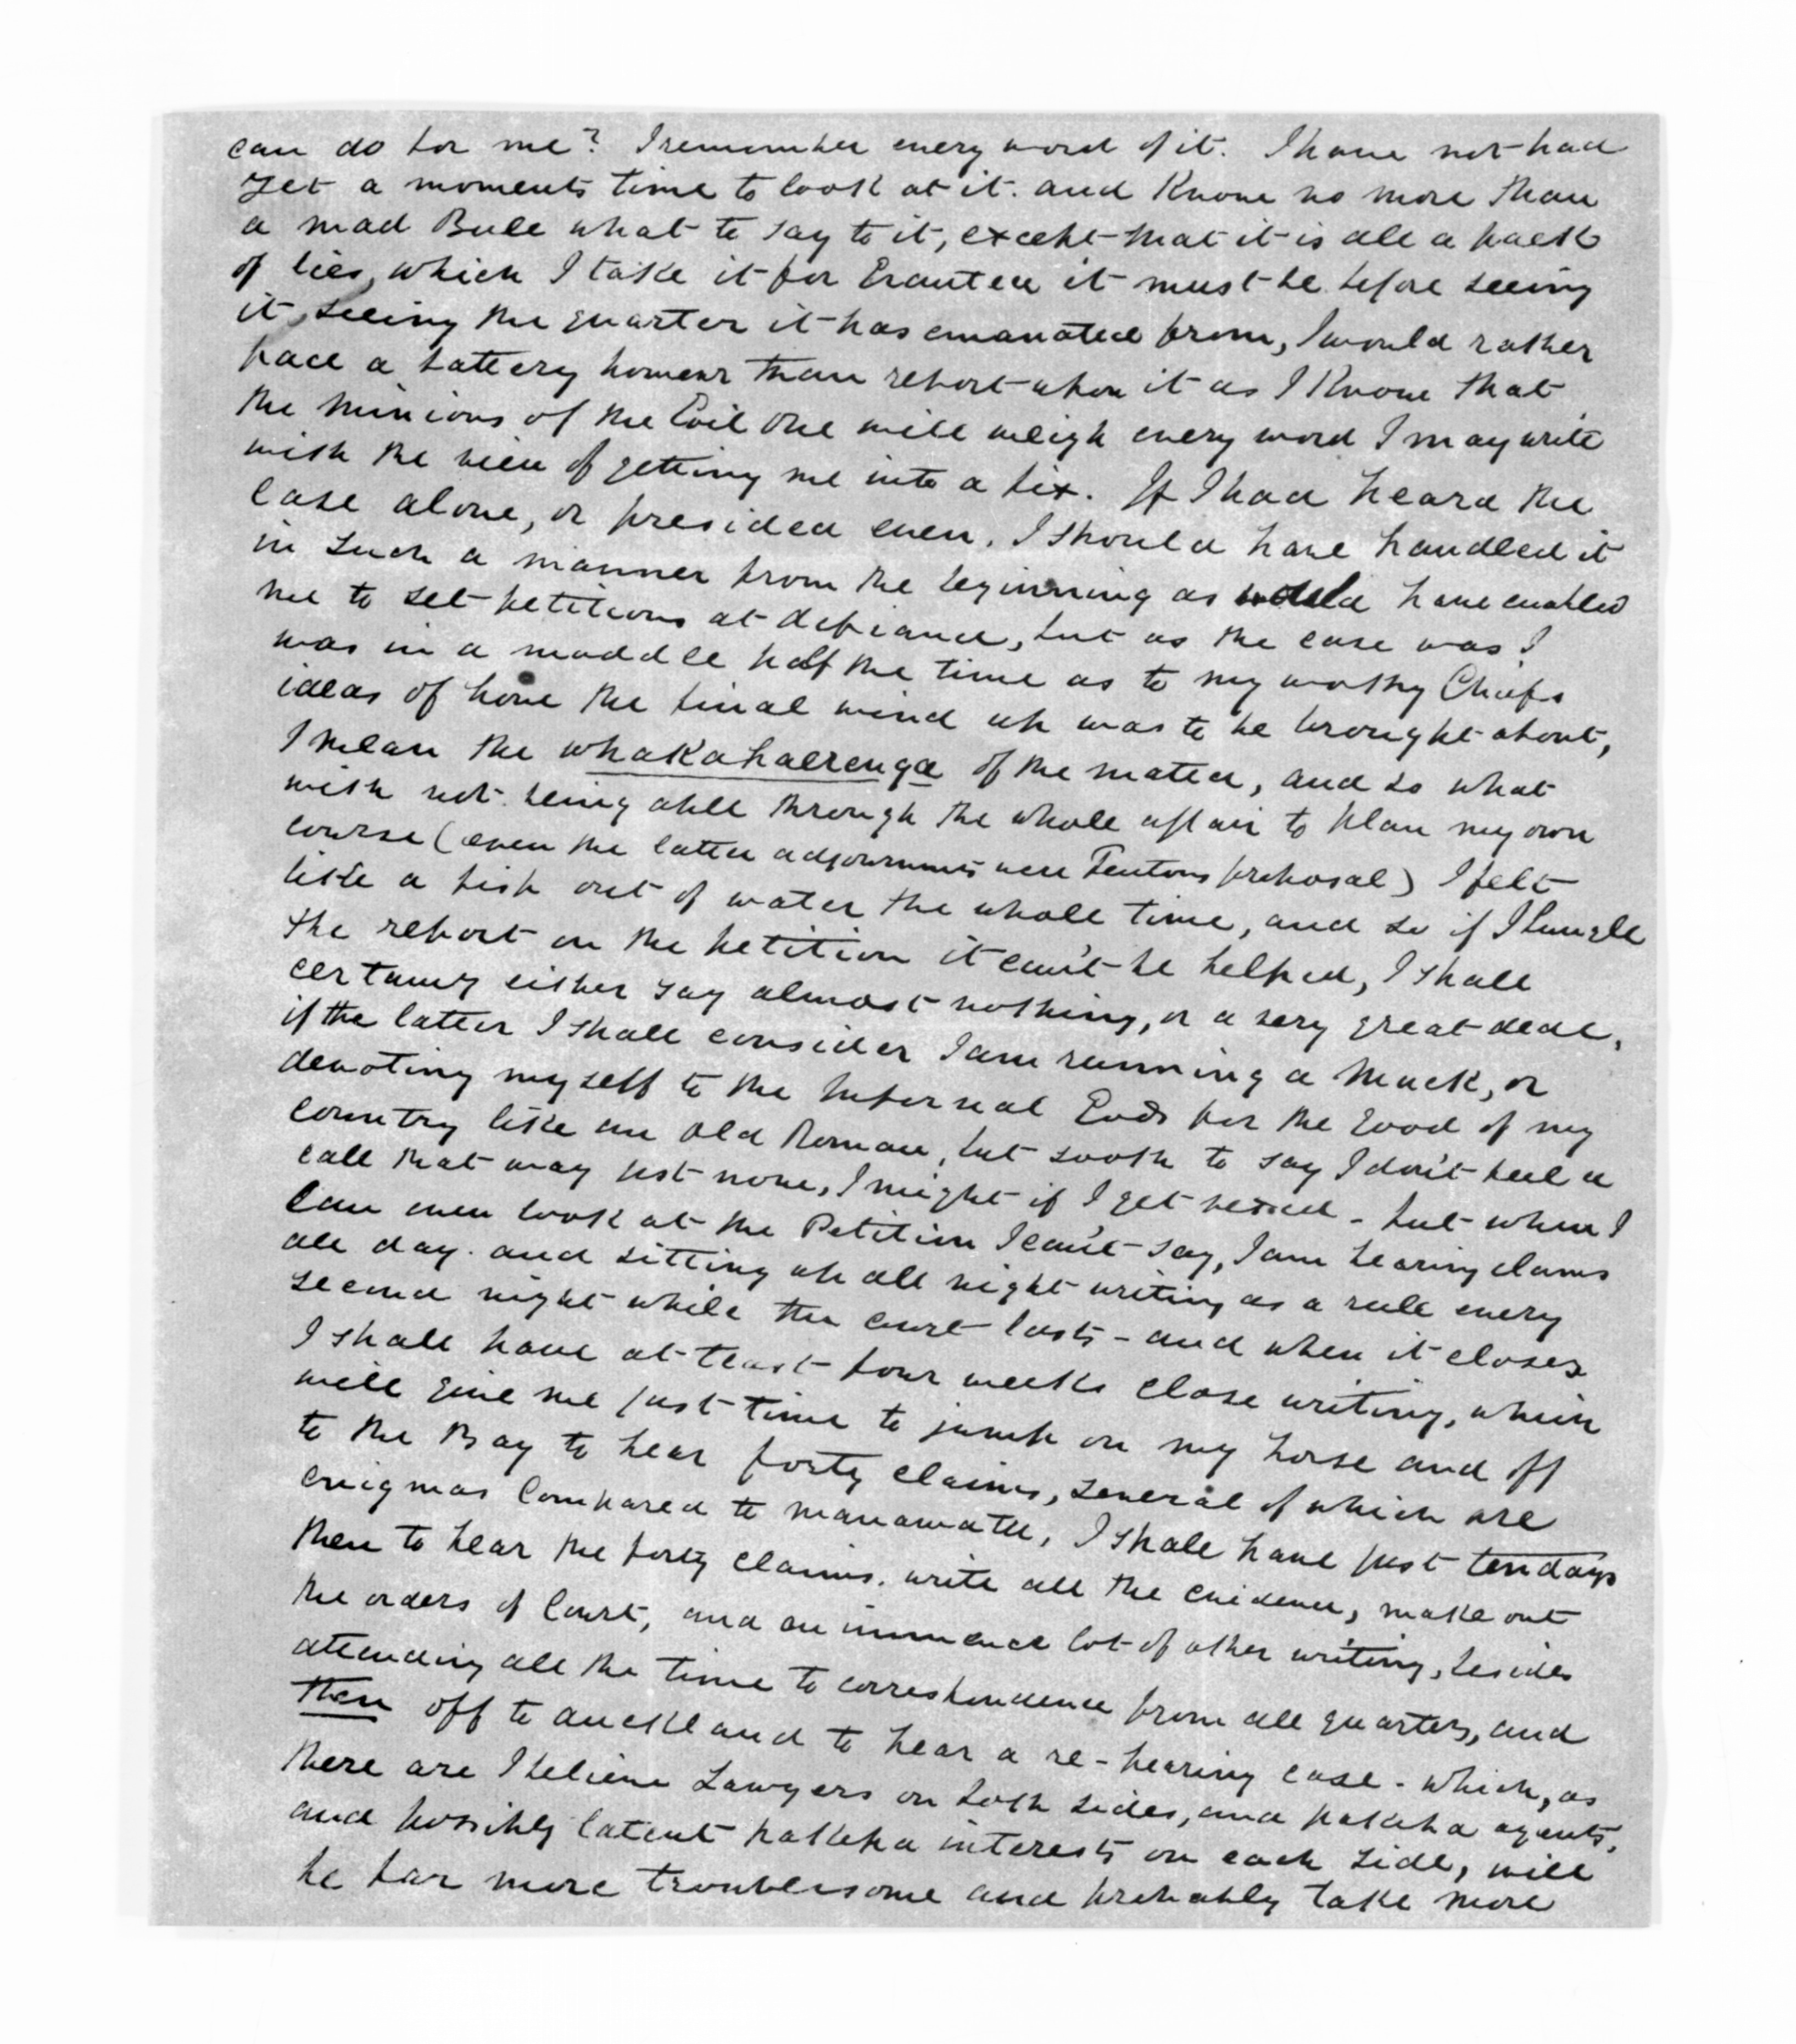 can do for me? I remember every word of it. I have not had
yet a moments time to look at it. and know no more than
a mad Bull what to say to it, except that it is all a pack
of lies, which I take it for Granted it must be before seeing
it, seeing the quarter it has emanated from, I would rather
face a battery however than report upon it as I know that
the minions of the Evil One will weigh every word I may write
with the view of getting me into a fix. If I had heard the
case alone, or presided even, I should have handled it
in such a manner from the beginning as would have enabled
me to set petitions at defiance, but as the case was I
was in a muddle half the time as to my worthy Chiefs
ideas of how the final wind up was to be brought about,
I mean the whakahaerenga of the matter, and so what
with not being able through the whole affair to plan my own
course (even the latter adjournments were Fentons proposal) I felt
like a fish out of water the whole time, and so if I bungle
the report on the petition it can't be helped, I shall
certainly either say almost nothing, or a very great deal,
if the latter I shall consider I am running a muck, or
devoting myself to the Infernal Gods for the good of my
country like an old Roman, but sooth to say I don't feel a
call that way just now, I might if I get vexed - but when I
can even look at the Petition I can't say, I am hearing claims
all day. and sitting up all night writing as a rule every
second night while the court lasts - and when it closes
I shall have at least four weeks close writing, which
will give me just time to jump on my horse and off
to the Bay to hear forty claims, several of which are
enigmas compared to manawatu, I shall have just ten days
then to hear the forty claims. write all the evidence, make out
the orders of Court, and an immence lot of other writing, besides
attending all the time to correspondence from all quarters, and
then off to auckland to hear a re-hearing case - which, as
there are I believe Lawyers on both sides, and pakeha agents,
and possibly latent pakeha interests on each side, will
be far more troublesome and probably take more